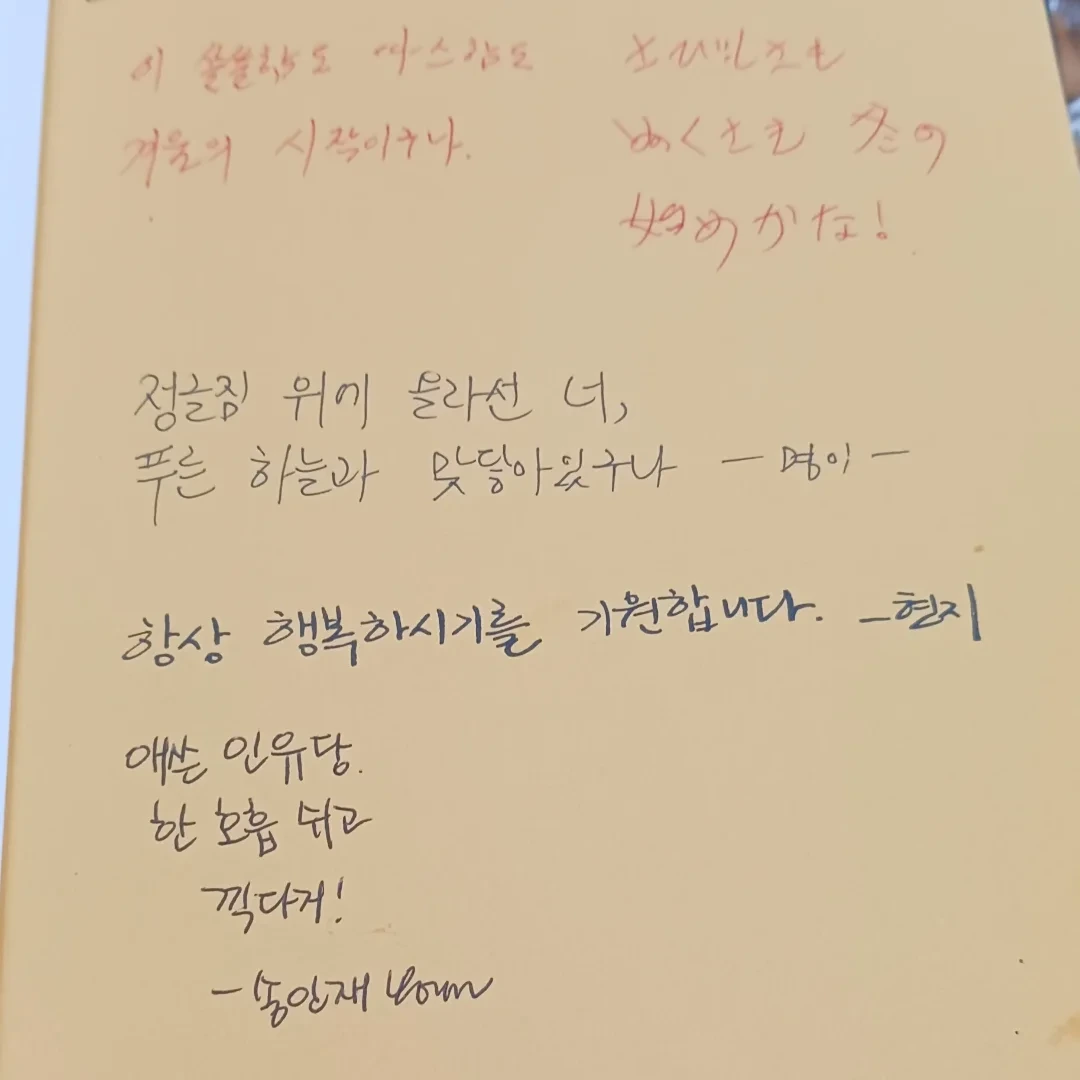 이 쓸쓸함도 따스함도
겨울의 시작이구나.
さびしさも
ぬくさも 冬の
始めかな!
정글짐 위에 올라선 너,
푸른 하늘과 맞닿아있구나 – 명이 –
항상 행복하시기를 기원합니다. – 현지
애쓴 인유당.
한 호흡 쉬고
끽다거!
– 송인재